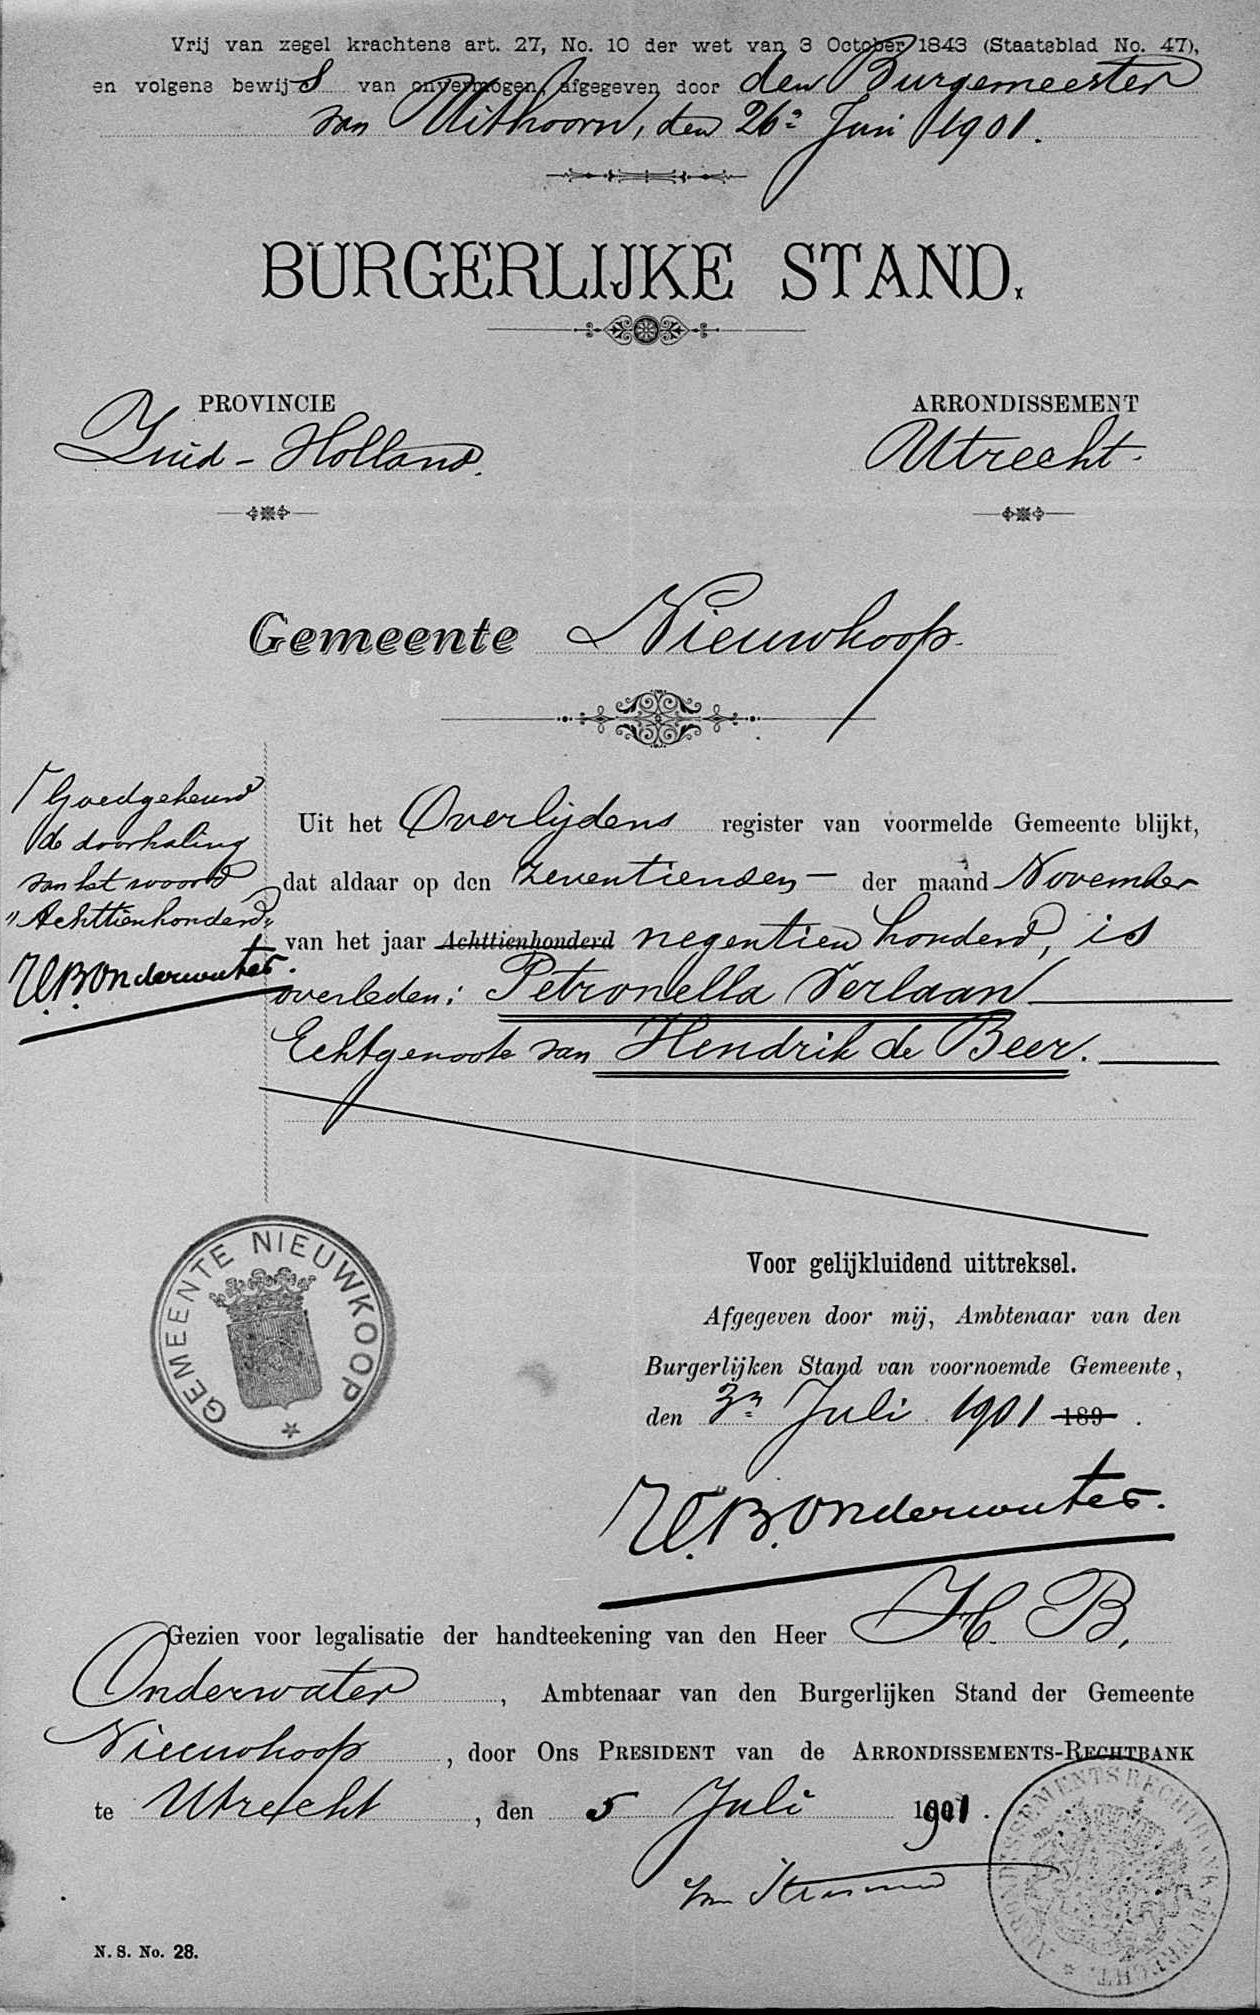 Vrij van zegel krachtens art. 27, No. 10 der wet van 3 October 1843 (Staatsblad No. 47),
en volgens bewijs van onvermogen, afgegeven door den Burgemeester
van Uithoorn, den 26n Juni 1901.
BURGERLIJKE STAND.
PROVINCIE
Zuid-Holland.
ARRONDISSEMENT
Utrecht.
Gemeente Nieuwkoop.
Goedgekeurd
de doorhaling
van het woord
"Achttienhonderd"
H.B. Onderwater.
Uit het Overlijdens register van voormelde Gemeente blijkt,
dat aldaar op den zeventienden der maand November
van het jaar Achttienhonderd negentienhonderd, is
overleden: Petronella Verlaan
Echtgenoote van Hendrik de Beer.
GEMEENTE NIEUWKOOP
Voor gelijkluidend uittreksel.
Afgegeven door mij, Ambtenaar van den
Burgerlijken Stand van voornoemde Gemeente,
den 3n Juli 1901 189 .
H.B. Onderwater.
Gezien voor legalisatie der handteekening van den Heer H. B.
Onderwater, Ambtenaar van den Burgerlijken Stand der Gemeente
Nieuwkoop, door Ons PRESIDENT van de ARRONDISSEMENTS-RECHTBANK
te Utrecht, den 5 Juli 1901.
ARRONDISSEMENTS RECHTBANK UTRECHT
N. S. No. 28.